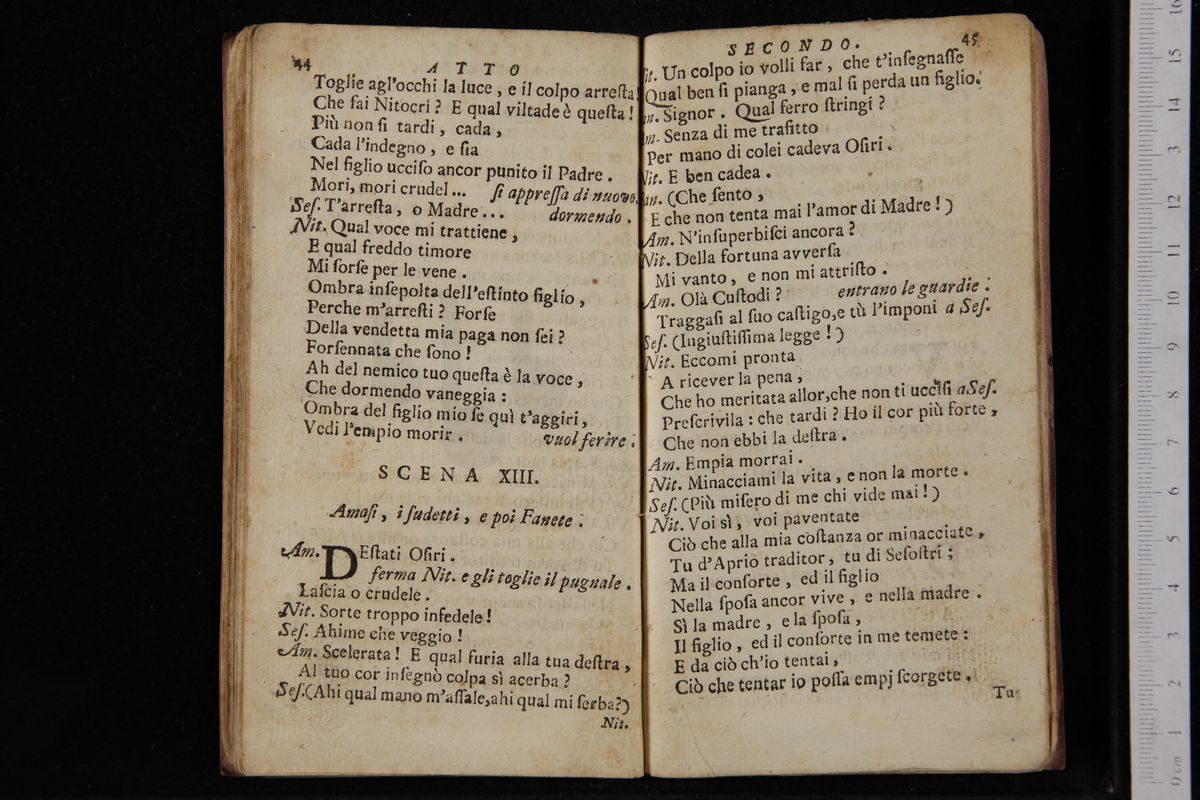 44
ATTO
Toglie agl'occhi la luce, e il colpo arreſta!
Che fai Nitocri? E qual viltade è queſta!
Più non ſi tardi, cada,
Cada l'indegno, e ſia
Nel figlio ucciſo ancor punito il Padre.
Mori, mori crudel... ſi appreſſa di nuovo.
Seſ. T'arreſta, o Madre... dormendo.
Nit. Qual voce mi trattiene,
E qual freddo timore
Mi ſorſe per le vene.
Ombra inſepolta dell'eſtinto figlio,
Perche m'arreſti? Forſe
Della vendetta mia paga non ſei?
Forſennata che ſono!
Ah del nemico tuo queſta è la voce,
Che dormendo vaneggia:
Ombra del figlio mio ſe quì t'aggiri,
Vedi l'empio morir. vuol ferire.
SCENA XIII.
Amaſi, i ſudetti, e poi Fanete.
Am. DEſtati Oſiri.
ferma Nit. e gli toglie il pugnale.
Laſcia o crudele.
Nit. Sorte troppo infedele!
Seſ. Ahime che veggio!
Am. Scelerata! E qual furia alla tua deſtra,
Al tuo cor inſegnò colpa sì acerba?
Seſ. (Ahi qual mano m'aſſale, ahi qual mi ſerba?)
Nit.
SECONDO.
45
it. Un colpo io volli far, che t'inſegnaſſe
Qual ben ſi pianga, e mal ſi perda un figlio.
an. Signor. Qual ferro ſtringi?
m. Senza di me trafitto
Per mano di colei cadeva Oſiri.
Nit. E ben cadea.
an. (Che ſento,
E che non tenta mai l'amor di Madre!)
Am. N'inſuperbiſci ancora?
Nit. Della fortuna avverſa
Mi vanto, e non mi attriſto.
Am. Olà Cuſtodi? entrano le guardie.
Traggaſi al ſuo caſtigo, e tù l'imponi a Seſ.
Seſ. (Ingiuſtiſſima legge!)
Nit. Eccomi pronta
A ricever la pena,
Che ho meritata allor, che non ti ucciſi a Seſ.
Preſcrivila: che tardi? Ho il cor più forte,
Che non ebbi la deſtra.
Am. Empia morrai.
Nit. Minacciami la vita, e non la morte.
Seſ. (Più miſero di me chi vide mai!)
Nit. Voi sì, voi paventate
Ciò che alla mia coſtanza or minacciate,
Tu d'Aprio traditor, tu di Seſoſtri;
Ma il conſorte, ed il figlio
Nella ſpoſa ancor vive, e nella madre.
Sì la madre, e la ſpoſa,
Il figlio, ed il conſorte in me temete:
E da ciò ch'io tentai,
Ciò che tentar io poſſa empj ſcorgete.
Tu